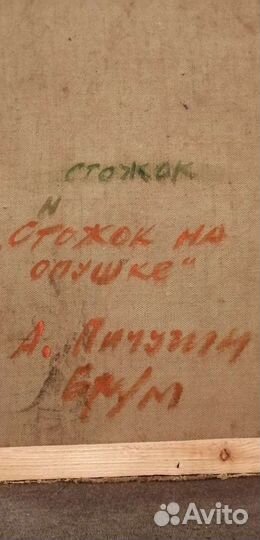 стожок
н
„Стожок на
опушке"
А. Пичугин
Avito